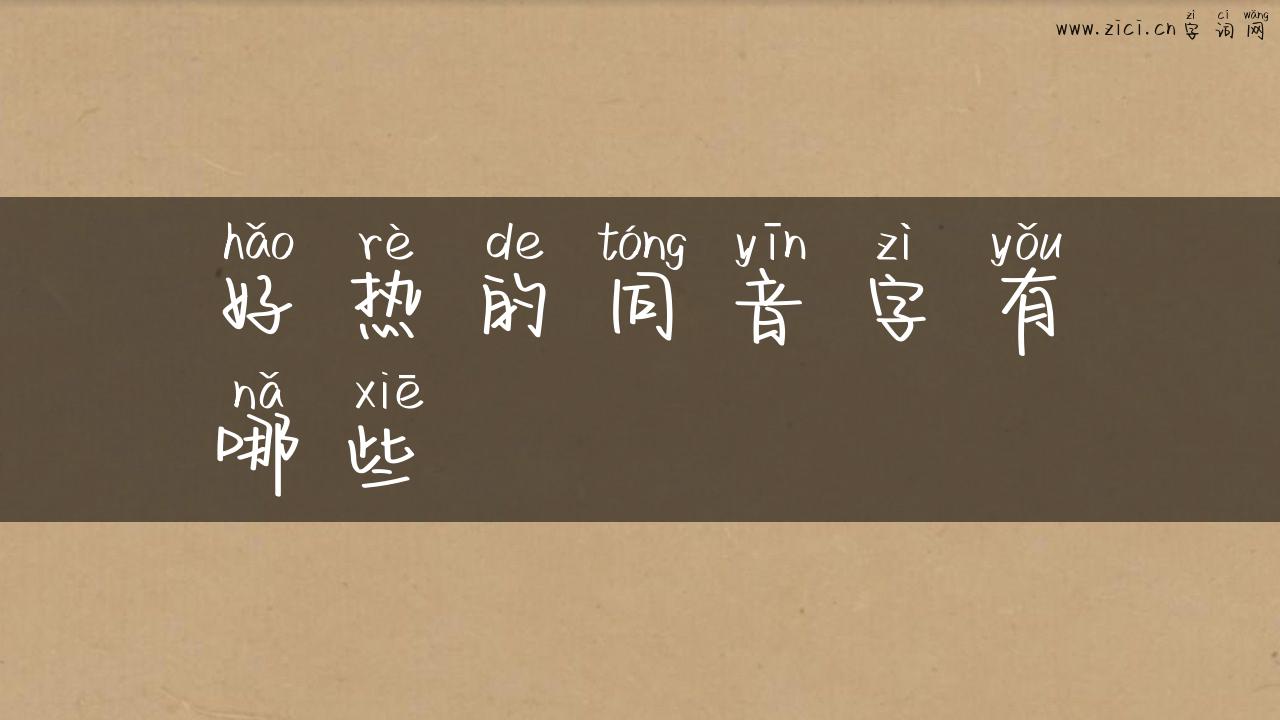 zì cí wǎng
www.zici.cn 字 词 网
hǎo rè de tóng yīn zì yǒu
好 热 的 同 音 字 有
nǎ xiē
哪 些